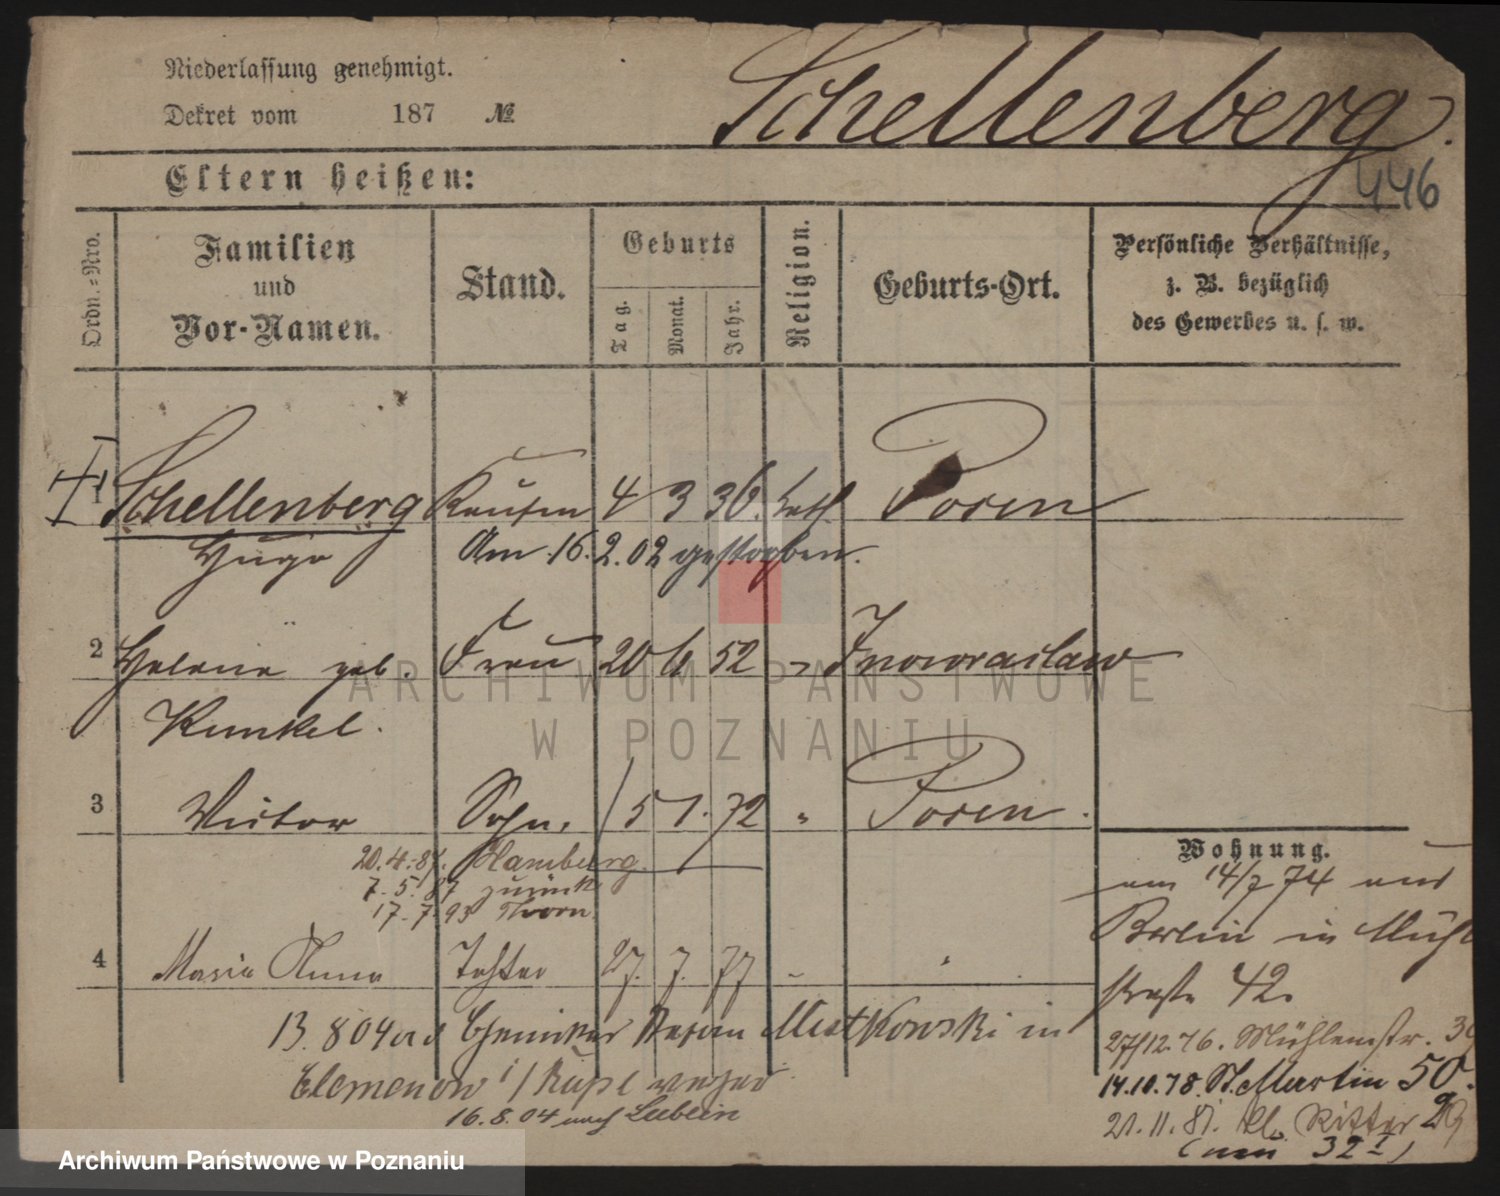 Niederlassung genehmigt.
Dekret vom 187 №
Schellenberg.
446
Eltern heißen:
Ordn.-Nro.
Familien und Vor-Namen.
Stand.
Geburts
Tag. Monat. Jahr.
Religion.
Geburts-Ort.
Persönliche Verhältnisse,
z. B. bezüglich
des Gewerbes u. s. w.
1 Schellenberg Kaufm 4 3 36. kath Posen
Hugo Am 16.2.02 gestorben.
2 Helene geb. Frau 20 6 52 Inowraclaw
Kunkel.
3 Victor Sohn. 5 1. 72 " Posen.
20.4.87. Hamburg.
7.5.87 zurück
17.7.93 Thorn.
4 Maria Anna Tochter 27. 7. 77
13.8 04 Chemiker Mutkowski in
16.8.04 nach Lublin
Wohnung.
am 14/7 74 aus
Berlin in Mühl
straße 42.
27/12.76. Mühlenstr. 39
14.10.78. St. Martin 50.
21.11.81. Kl. Ritter 29
(nun 32 I)
ARCHIWUM PAŃSTWOWE
W POZNANIU
Archiwum Państwowe w Poznaniu